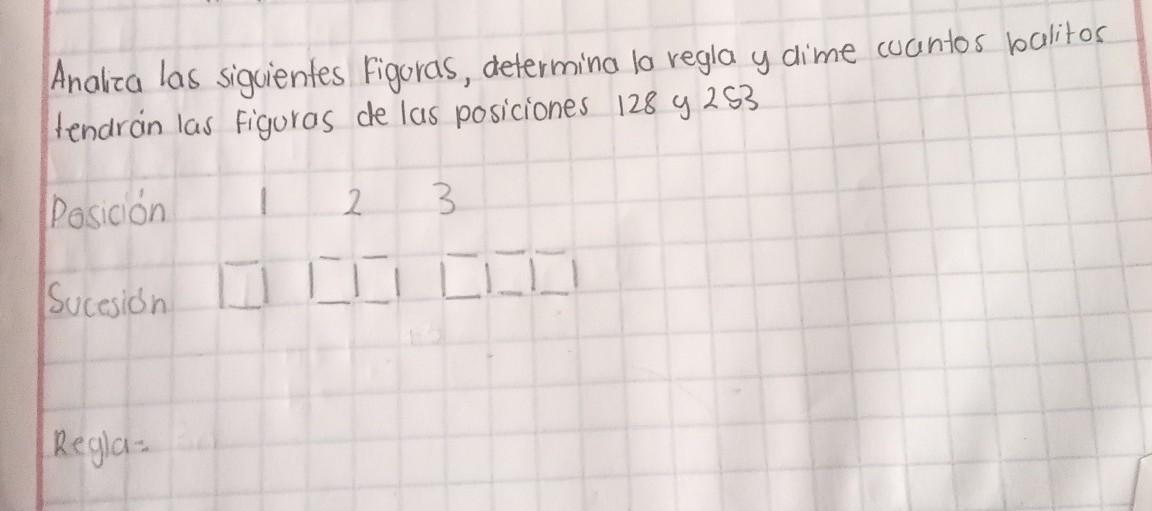 Analiza las siguientes Figuras, determina la regla y dime cuantos palitos
tendrán las Figuras de las posiciones 128 y 253
Posición 1 2 3
Sucesión
Regla=